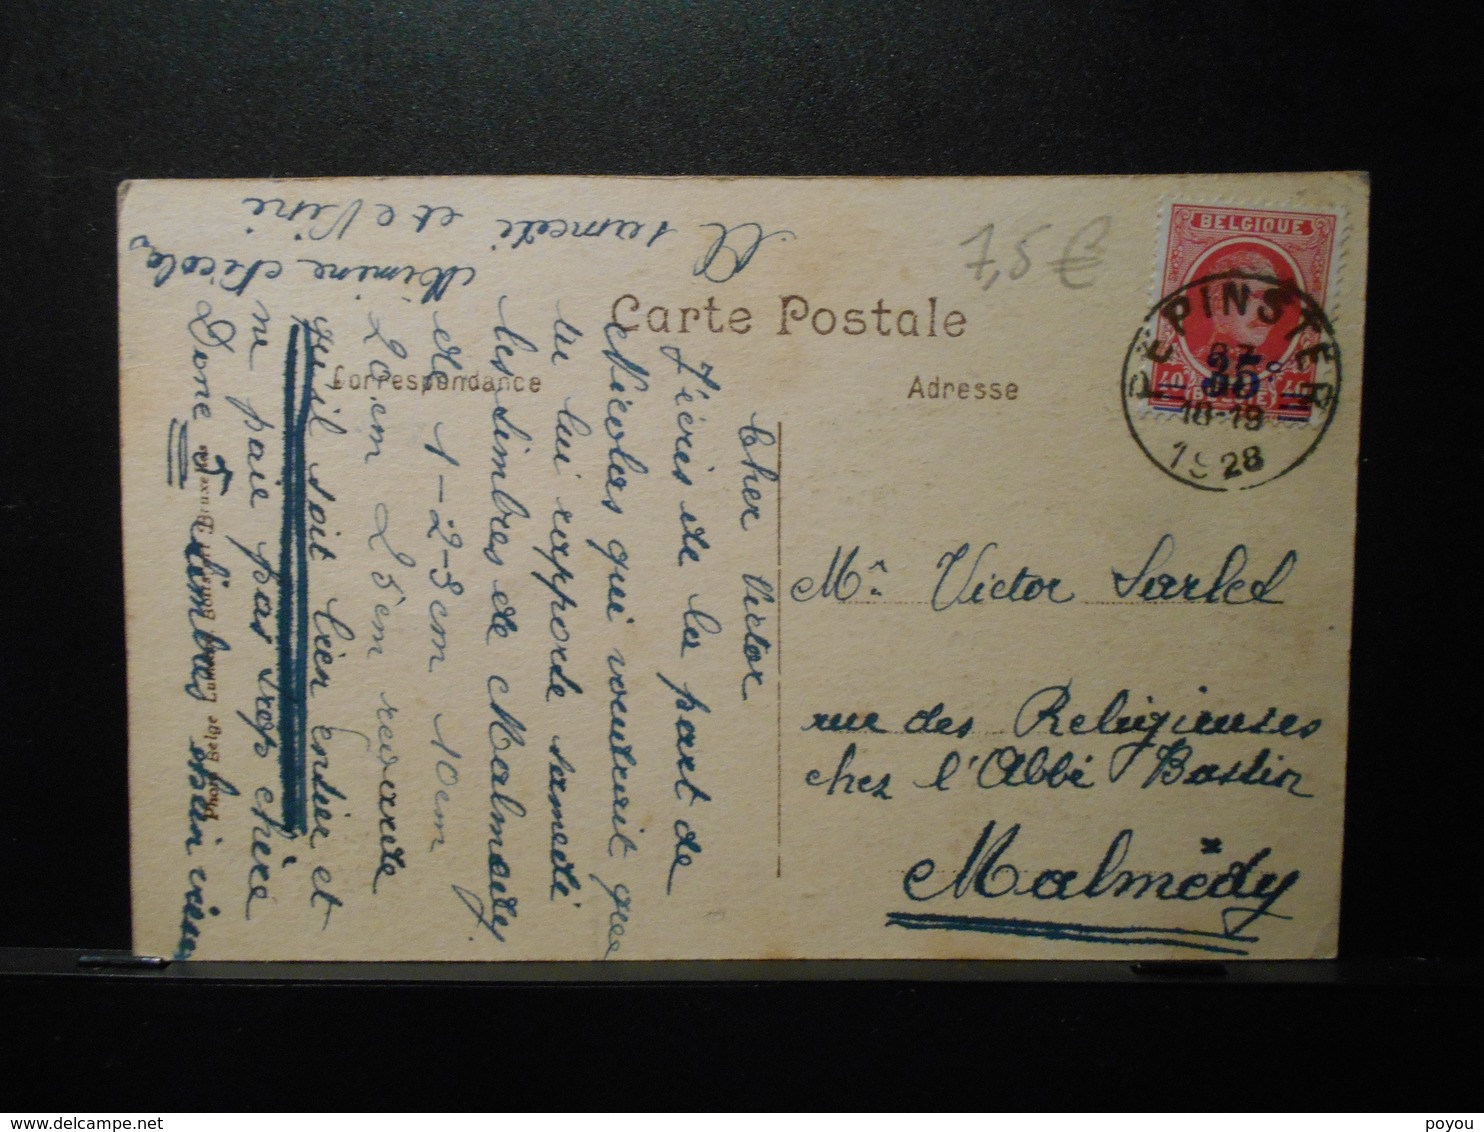 7,5€
BELGIQUE
PEPINSTER
27
35c
18-19
1928
(BELGIE)
Carte Postale
Correspondance
Adresse
Mr Victor Sarlet
rue des Religieuses
chez l'Abbé Bastin
Malmédy
Cher Victor
J'écris de la part de
Nicolas qui voudrait que
tu lui rapporte samedi
les timbres de Malmédy
de 1-2-3 cm 10 cm
20 cm 25 cm
qu'il soit bien entier et
ne paie pas trop chère
Donc timbres bien
A samedi et
Mimine Nicolas
Photo Belge Bruxelles
www.delcampe.net
poyou